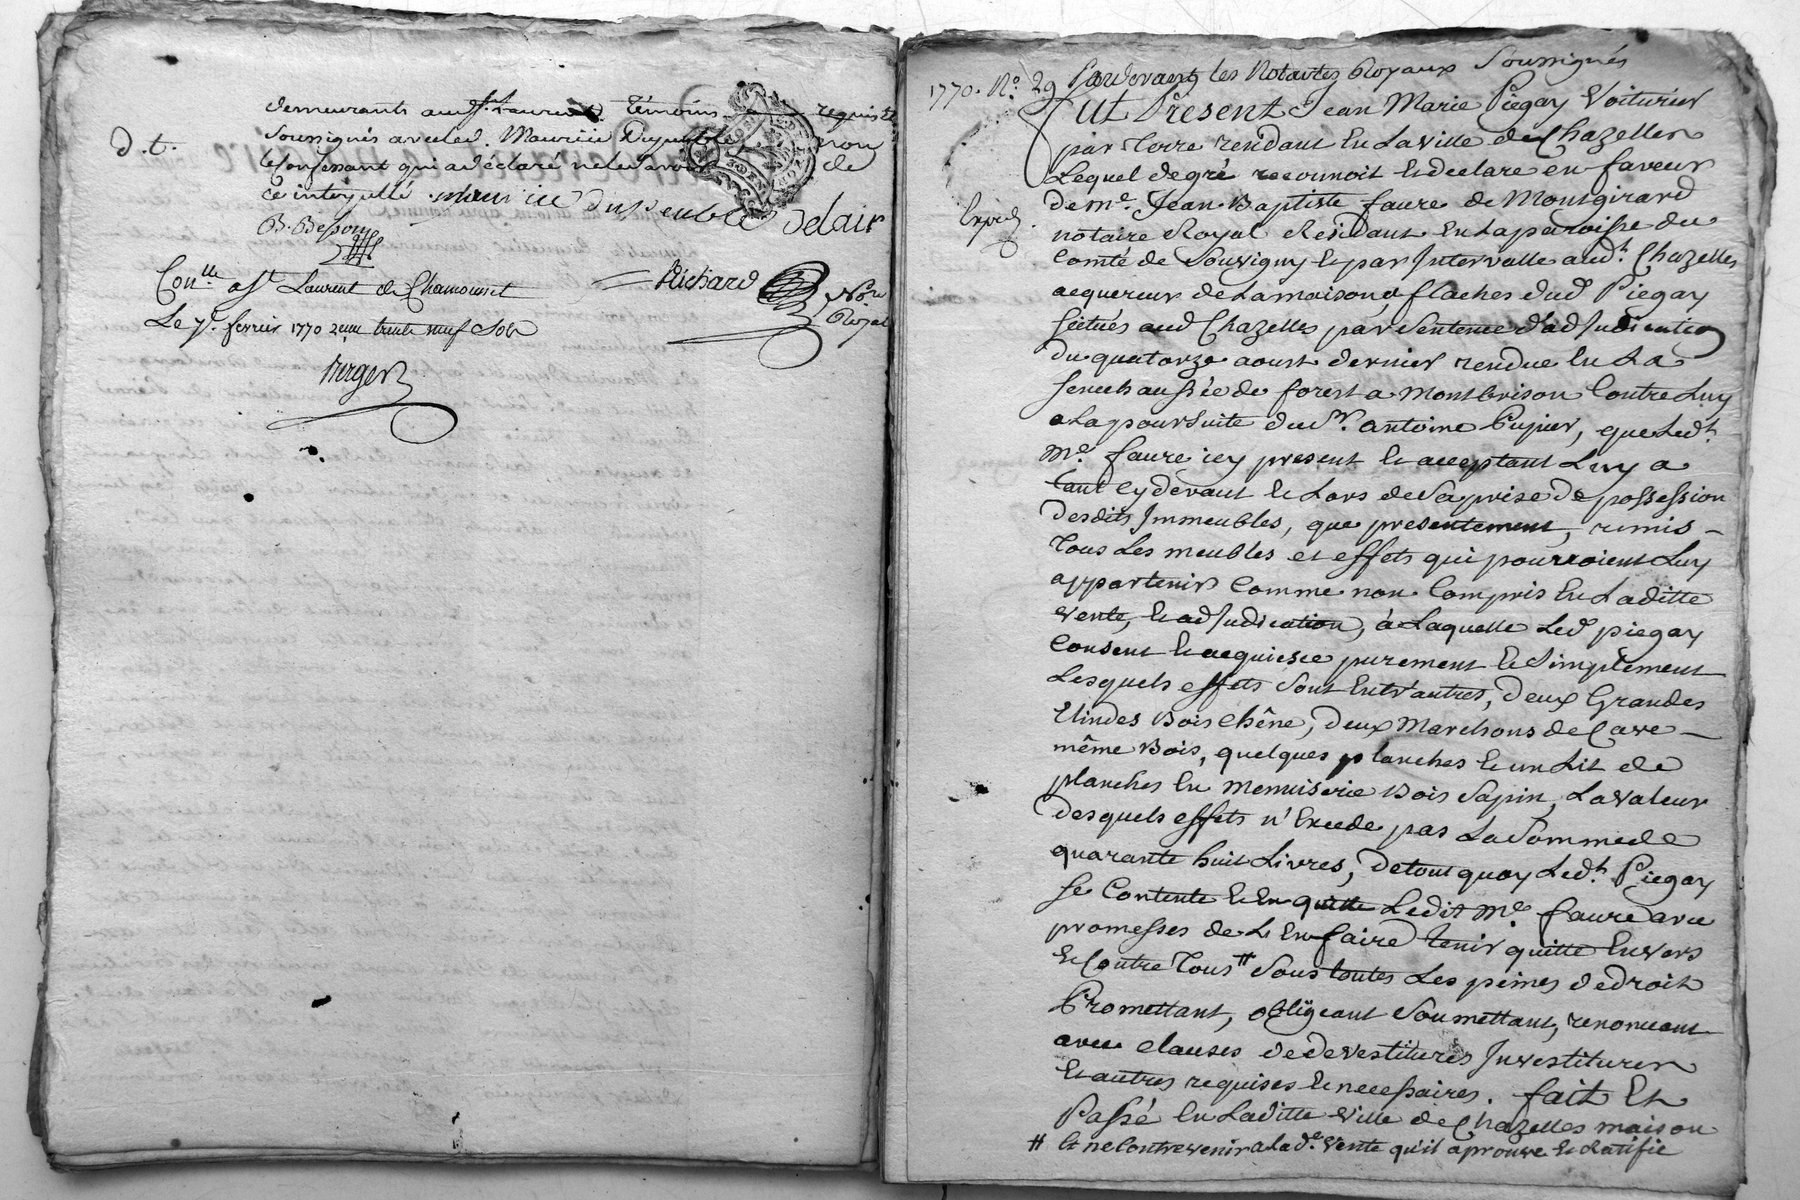 demeurants aud St Laurens témoins requis &
d. t.
soussignés avec led. Maurice Dupeuble non
le confessant qui a déclaré ne le savoir de
ce interpellé. maurice dupeuble Delair
B. Besson
Con.lle a St Laurent de Chamousset Richard No.re
Royal
Le 7e. fevrier 1770 reçu trente neuf sols
Berger
1770. No. 29 Pardevant les Notaires Royaux soussignés
Fut Présent Jean Marie Piegay Voiturier
par terre rendant en la ville de Chazelles
Lequel de gré reconnoit & declare en faveur
Expéd.
de me. Jean Baptiste faure de Montgirard
notaire Royal Residant en la paroisse du
Comté de Souvigny & par Intervalle aud.t Chazelles
acquereur de la maison & flaches dud Piegay
scitués aud Chazelles par sentence d'adjudication
du quatorze aoust dernier rendue en la
senechaussée de forest a Montbrison Contre luy
a la poursuite du Sr. antoine Pupier, que led.t
Me. faure icy present & acceptant luy a
tant cy devant & lors de sa prise de possession
desdits Immeubles, que presentement, remis
tous les meubles et effets qui pourroient luy
appartenir Comme non Compris en laditte
vente, & adjudication, à laquelle led piegay
Consent & acquiesce purement & simplement
Lesquels effets sont entr'autres, deux Grandes
Bois chêne, deux Marchons de Cave
même Bois, quelques planches & un lit de
planches en menuiserie Bois sapin, la valeur
desquels effets n'Excede pas la somme de
quarante huit livres, de tout quoy led.t Piegay
se Contente & en quitte ledit Me. faure avec
promesses de l'en faire tenir quitte envers
& Contre tous # sous toutes les peines de droit
Promettant, obligeant soumettant, renonceant
avec clauses de devestitures Investitures
& autres requises & necessaires. fait Et
Passé en laditte ville de Chazelles maison
# & ne Contrevenir a lad.e vente qu'il aprouve & Ratifie